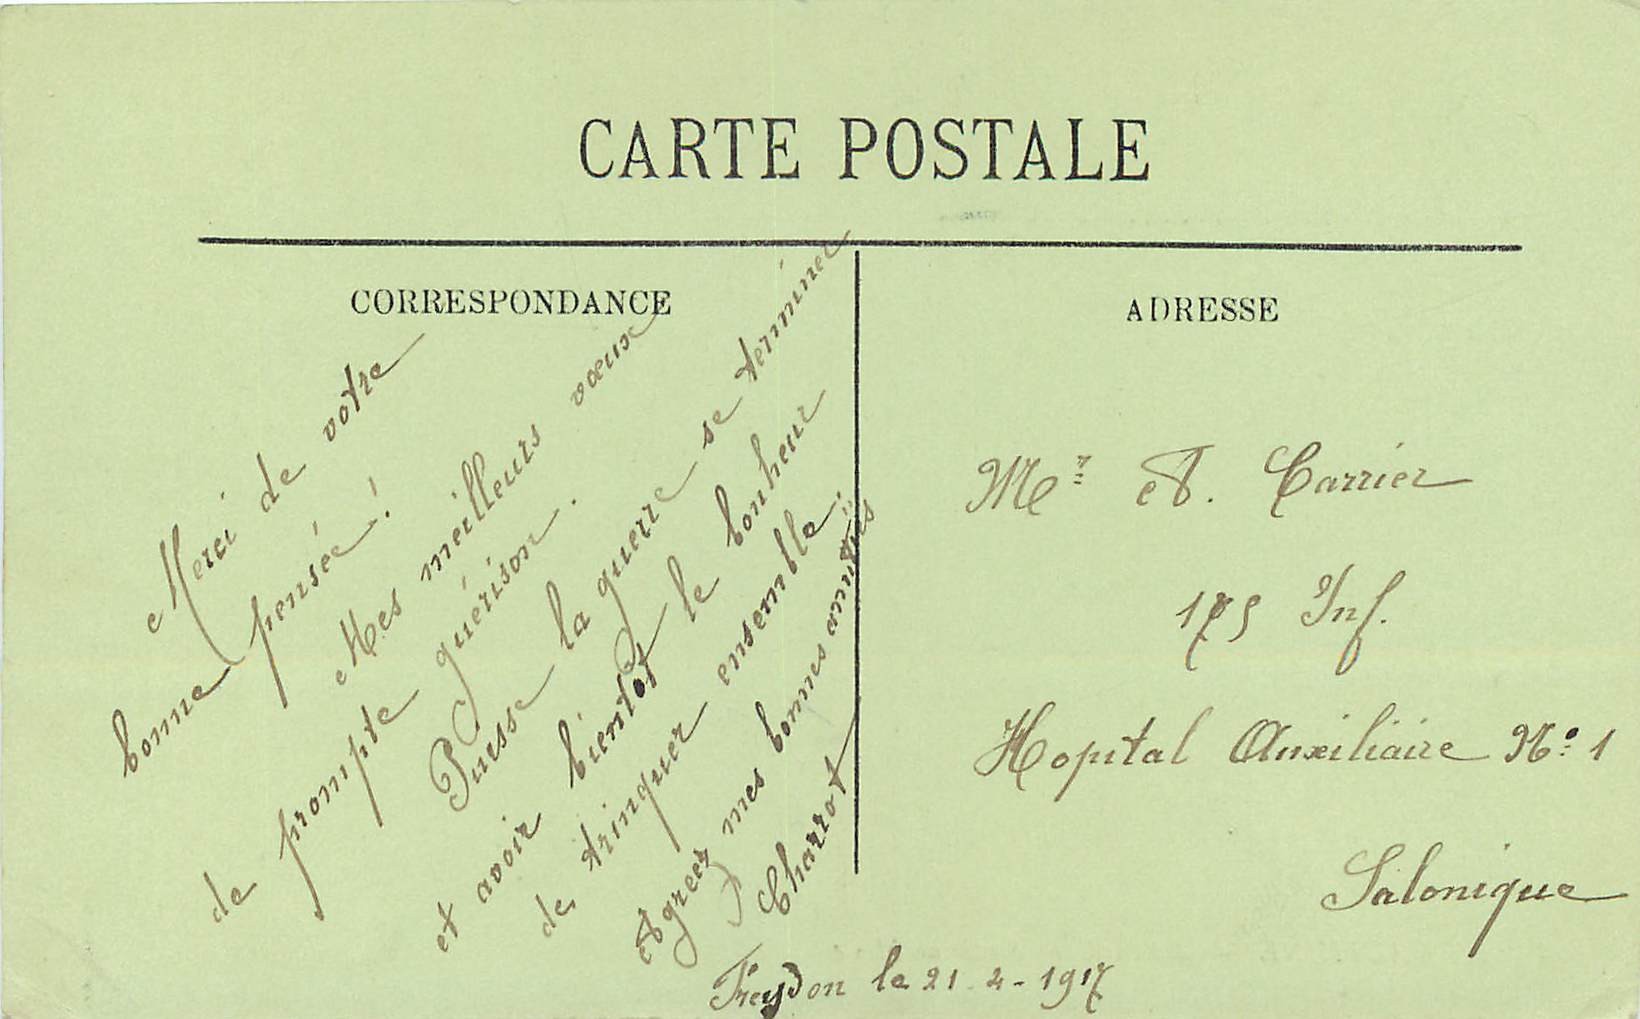 CARTE POSTALE
CORRESPONDANCE
Merci de votre
bonne pensée!
Mes meilleurs vœux
de prompte guérison.
Puisse la guerre se terminer
et avoir bientot le bonheur
de trinquer ensemble.
Agréez mes bonnes amitiés
Charrot
le 21-4-1917
ADRESSE
Mr A. Carrier
175 Inf.
Hopital Auxiliaire No 1
Salonique